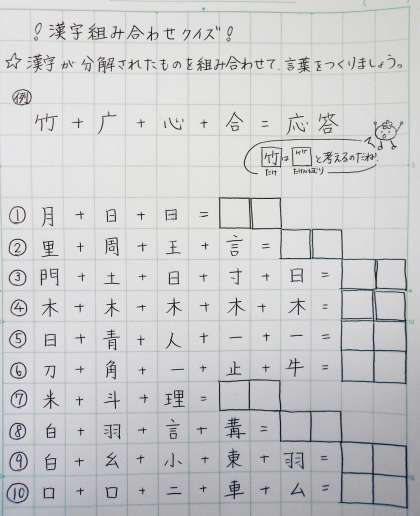 ！漢字組み合わせクイズ！
☆漢字が分解されたものを組み合わせて、言葉をつくりましょう。
例
竹 + 广 + 心 + 合 = 応答
竹は⺮と考えるのだね!
たけ たけかんむり
① 月 + 日 + 日 =
② 里 + 周 + 王 + 言 =
③ 門 + 土 + 日 + 寸 + 日 =
④ 木 + 木 + 木 + 木 + 木 =
⑤ 日 + 青 + 人 + 一 + 一 =
⑥ 刀 + 角 + 一 + 止 + 牛 =
⑦ 米 + 斗 + 理 =
⑧ 白 + 羽 + 言 + 冓 =
⑨ 白 + 幺 + 小 + 東 + 羽 =
⑩ 口 + 口 + 二 + 車 + ム =